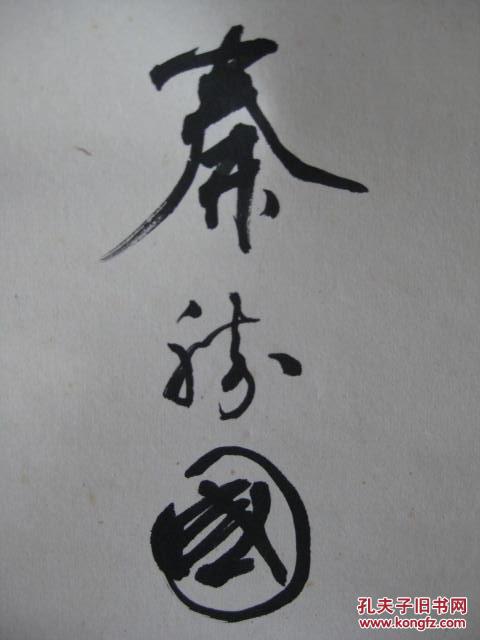 秦勝國
孔夫子旧书网
www.kongfz.com